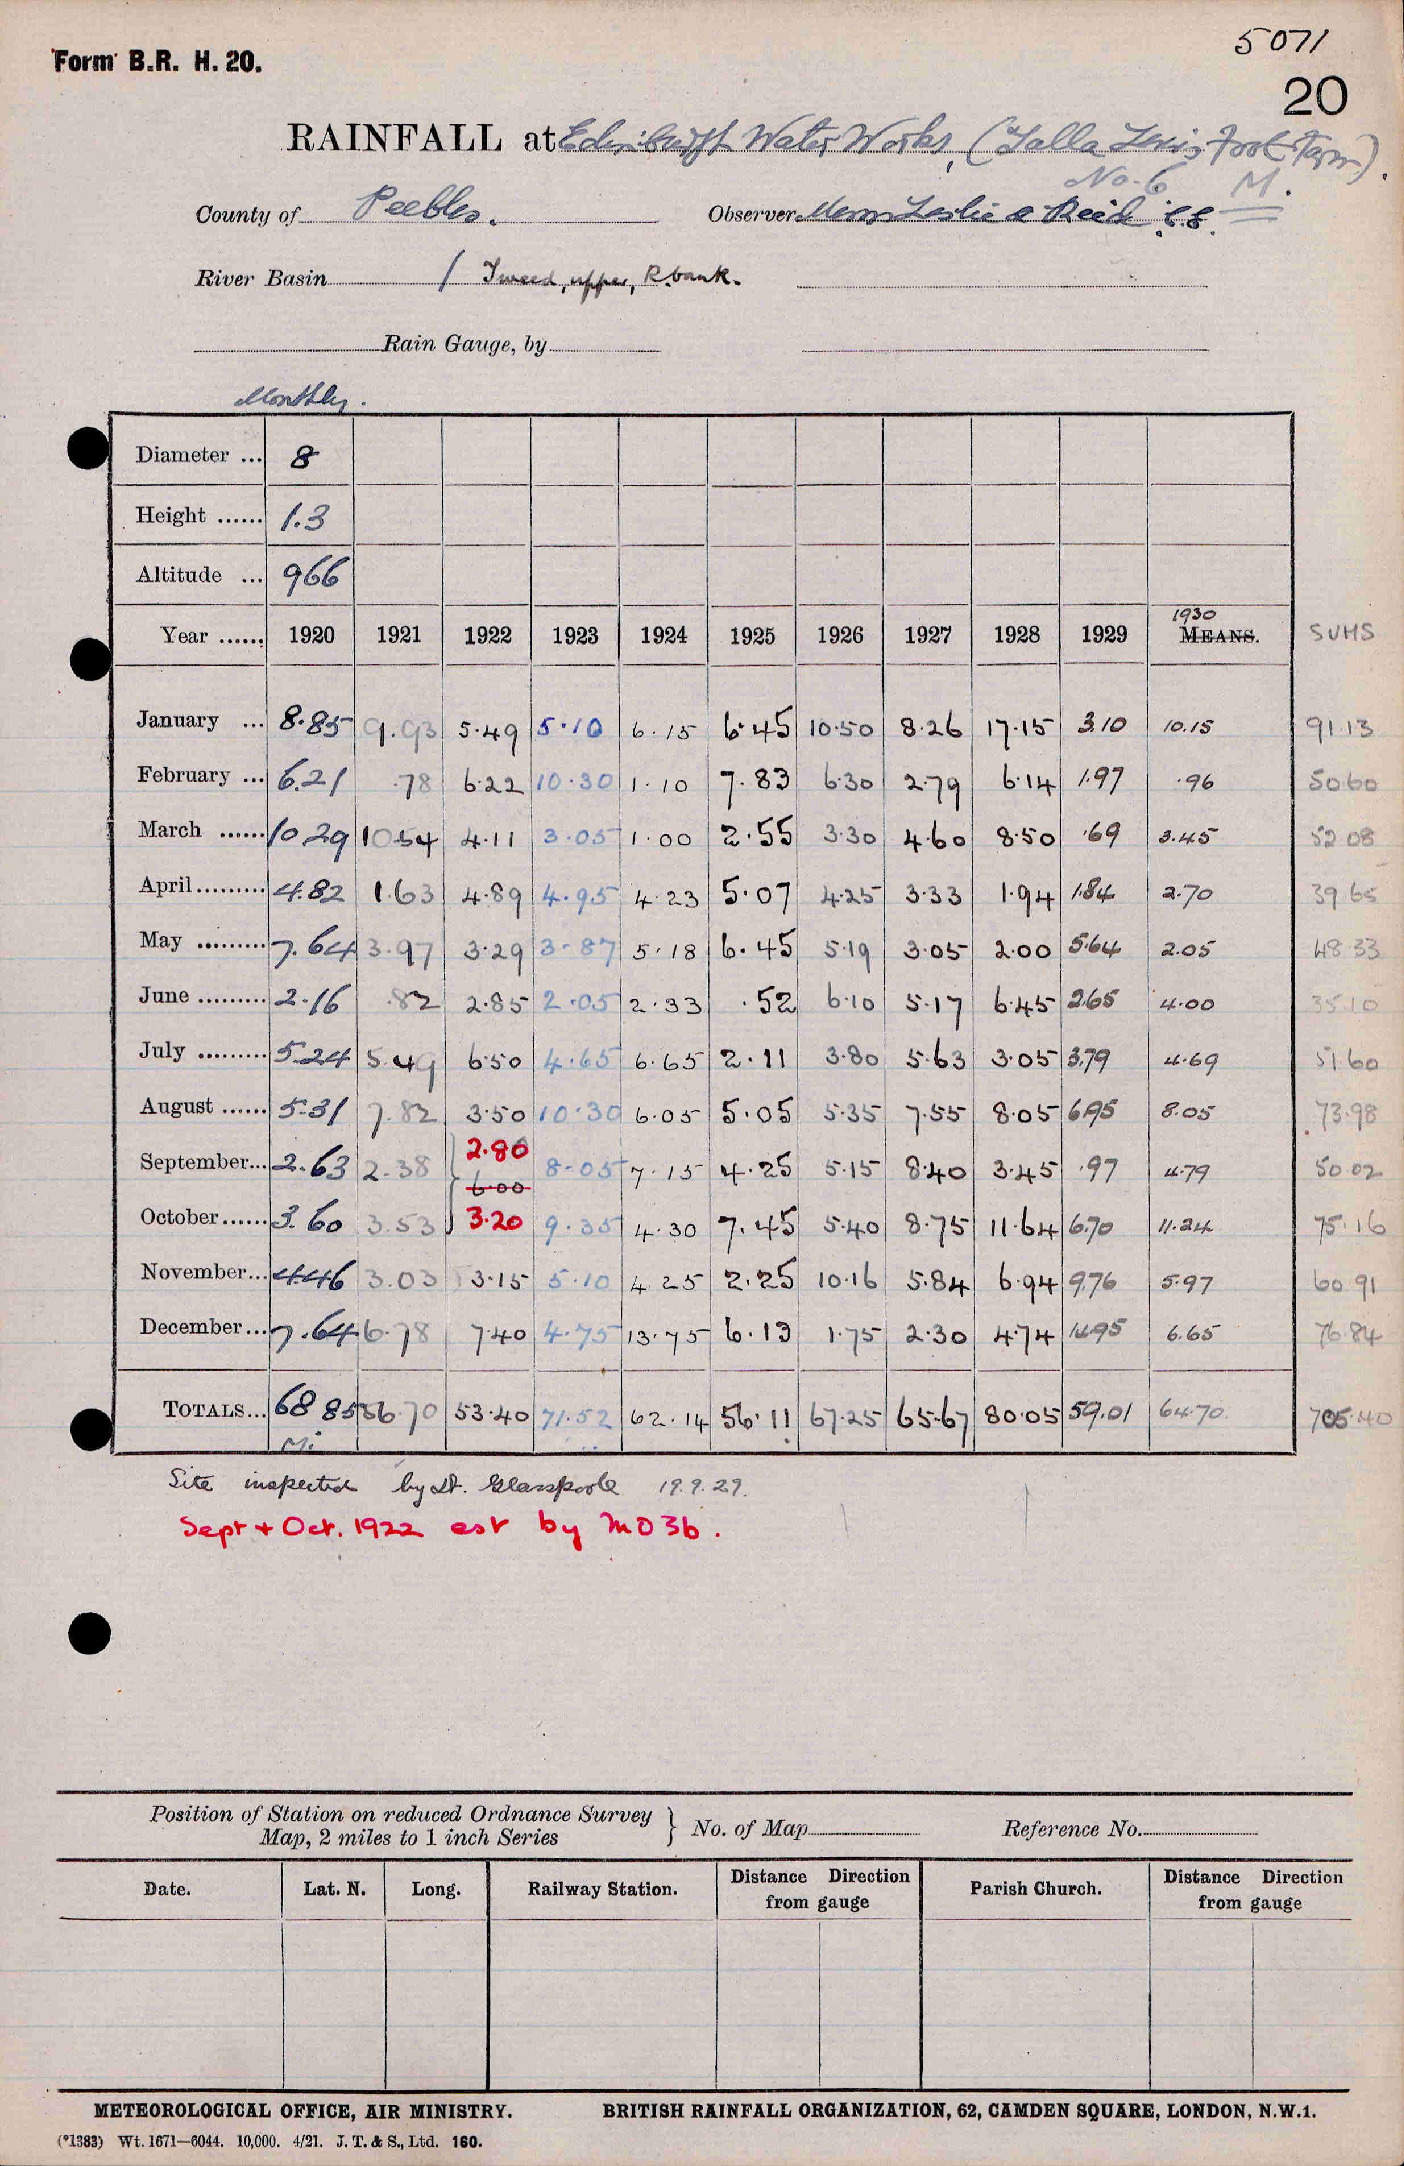 5071
Form B.R. H. 20.
20
RAINFALL at Edinburgh Water Works, (Talla Linns Foot Farm).
No. 6 M.
County of Peebles. Observer Messrs Leslie & Reid C.E.
River Basin / Tweed, upper, R. bank.
Rain Gauge, by
Monthly.
Diameter ... 8
Height ...... 1.3
Altitude ... 966
Year ...... 1920 1921 1922 1923 1924 1925 1926 1927 1928 1929 1930 MEANS. SUMS
January ... 8.85 9.93 5.49 5.10 6.15 6.45 10.50 8.26 17.15 3.10 10.15 91.13
February ... 6.21 .78 6.22 10.30 1.10 7.83 6.30 2.79 6.14 1.97 .96 50.60
March ...... 10.29 10.54 4.11 3.05 1.00 2.55 3.30 4.60 8.50 .69 3.45 52.08
April ......... 4.82 1.63 4.89 4.95 4.23 5.07 4.25 3.33 1.94 1.84 2.70 39.65
May ......... 7.64 3.97 3.29 3.87 5.18 6.45 5.19 3.05 2.00 5.64 2.05 48.33
June ......... 2.16 .82 2.85 2.05 2.33 .52 6.10 5.17 6.45 2.65 4.00 35.10
July ......... 5.24 5.49 6.50 4.65 6.65 2.11 3.80 5.63 3.05 3.79 4.69 51.60
August ...... 5.31 7.82 3.50 10.30 6.05 5.05 5.35 7.55 8.05 6.95 8.05 73.98
September... 2.63 2.38 2.80 8.05 7.15 4.25 5.15 8.40 3.45 .97 4.79 50.02
6.00
October...... 3.60 3.53 3.20 9.35 4.30 7.45 5.40 8.75 11.64 6.70 11.24 75.16
November... 4.46 3.03 3.15 5.10 4.25 2.25 10.16 5.84 6.94 9.76 5.97 60.91
December... 7.64 6.78 7.40 4.75 13.75 6.13 1.75 2.30 4.74 14.95 6.65 76.84
TOTALS... 68.85 56.70 53.40 71.52 62.14 56.11 67.25 65.67 80.05 59.01 64.70 705.40
Mi
Site inspected by Dr. Glasspoole 19.9.29.
Sept + Oct. 1922 est by MO3b.
Position of Station on reduced Ordnance Survey
Map, 2 miles to 1 inch Series } No. of Map Reference No.
Date. Lat. N. Long. Railway Station. Distance Direction from gauge Parish Church. Distance Direction from gauge
METEOROLOGICAL OFFICE, AIR MINISTRY. BRITISH RAINFALL ORGANIZATION, 62, CAMDEN SQUARE, LONDON, N.W.1.
(*1383) Wt. 1671—6044. 10,000. 4/21. J. T. & S., Ltd. 160.